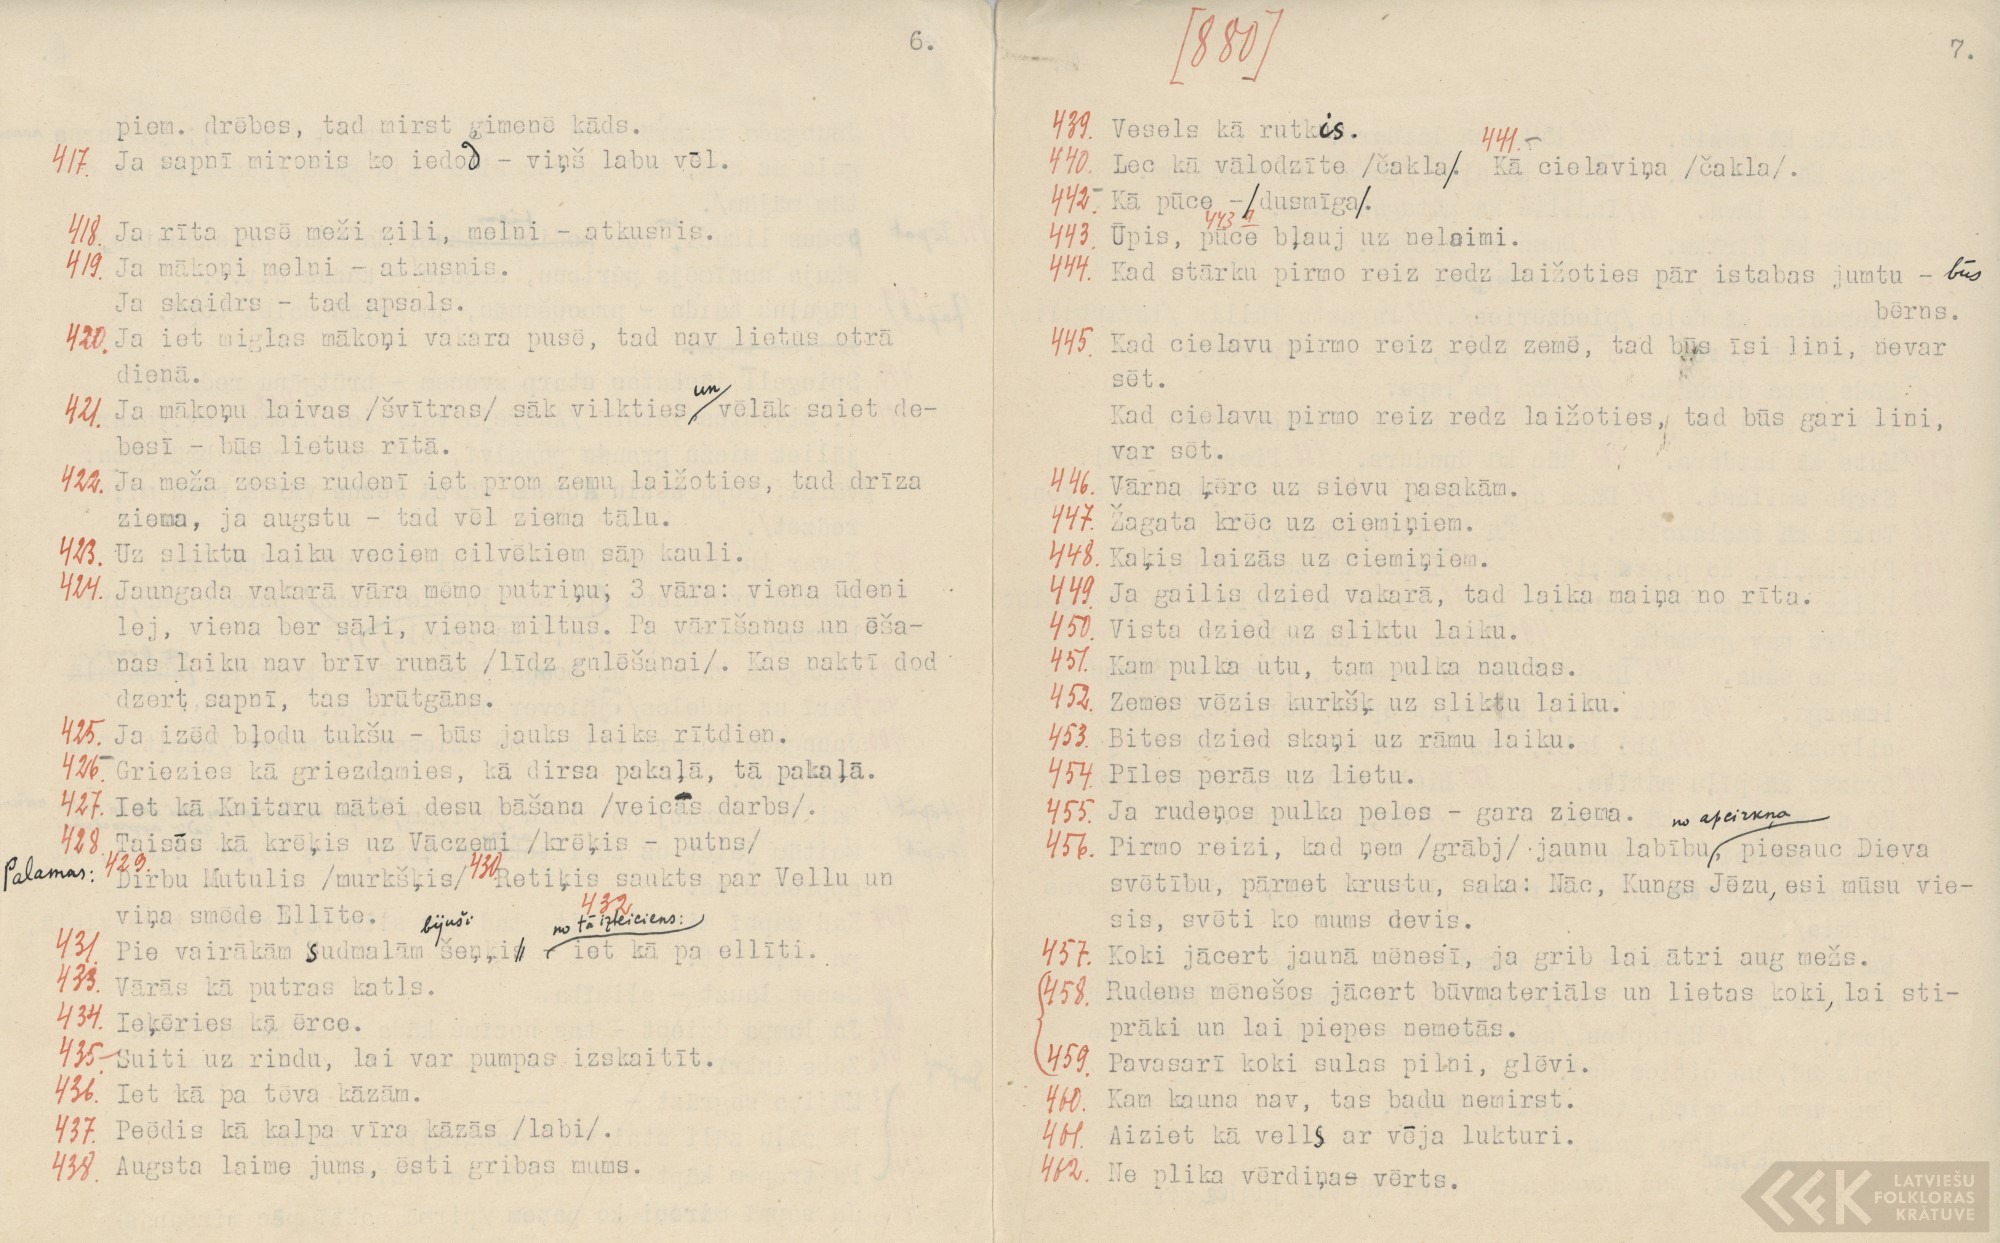 6.
piem. drēbes, tad mirst ģimenē kāds.
417. Ja sapnī mironis ko iedod - viņš labu vēl.
418. Ja rīta pusē meži zili, melni - atkusnis.
419. Ja mākoņi melni - atkusnis.
Ja skaidrs - tad apsals.
420. Ja iet miglas mākoņi vakara pusē, tad nav lietus otrā
dienā.
421. Ja mākoņu laivas /švītras/ sāk vilkties, un vēlāk saiet de-
besī - būs lietus rītā.
422. Ja meža zosis rudenī iet prom zemu laižoties, tad drīza
ziema, ja augstu - tad vēl ziema tālu.
423. Uz sliktu laiku veciem cilvēkiem sāp kauli.
424. Jaungada vakarā vāra mēmo putriņu; 3 vāra: viena ūdeni
lej, viena ber sāļi, viena miltus. Pa vārīšanas un ēša-
nas laiku nav brīv runāt /līdz gulēšanai/. Kas naktī dod
dzert sapnī, tas brūtgāns.
425. Ja izēd bļodu tukšu - būs jauks laiks rītdien.
426. Griezies kā griezdamies, kā dirsa pakaļā, tā pakaļā.
427. Iet kā Knitaru mātei desu bāšana /veicās darbs/.
428. Taisās kā krēķis uz Vāczemi /krēķis - putns/
Palamas: 429. Dirbu Mutulis /murkšķis/ 430. Retiķis saukts par Vellu un
viņa smēde Ellīte.
431. Pie vairākām Sudmalām bijuši šeņķi 432 no tā izteiciens: iet kā pa ellīti.
433. Vārās kā putras katls.
434. Ieķēries kā ērce.
435. Suiti uz rindu, lai var pumpas izskaitīt.
436. Iet kā pa tēva kāzām.
437. Peēdis kā kalpa vīra kāzās /labi/.
438. Augsta laime jums, ēsti gribas mums.
[880]
7.
439. Vesels kā rutkis.
440. Lec kā vālodzīte /čakla/. 441. Kā cielaviņa /čakla/.
442. Kā pūce - /dusmīga/.
443. Ūpis, 443a pūce bļauj uz nelaimi.
444. Kad stārku pirmo reiz redz laižoties pār istabas jumtu - būs
bērns.
445. Kad cielavu pirmo reiz redz zemē, tad būs īsi lini, nevar
sēt.
Kad cielavu pirmo reiz redz laižoties, tad būs gari lini,
var sēt.
446. Vārna ķērc uz sievu pasakām.
447. Žagata krēc uz ciemiņiem.
448. Kaķis laizās uz ciemiņiem.
449. Ja gailis dzied vakarā, tad laika maiņa no rīta.
450. Vista dzied uz sliktu laiku.
451. Kam pulka utu, tam pulka naudas.
452. Zemes vēzis kurkšķ uz sliktu laiku.
453. Bites dzied skaņi uz rāmu laiku.
454. Pīles perās uz lietu.
455. Ja rudeņos pulka peles - gara ziema.
456. Pirmo reizi, kad ņem /grābj/ jaunu labību no apcirkņa, piesauc Dieva
svētību, pārmet krustu, saka: Nāc, Kungs Jēzu, esi mūsu vie-
sis, svēti ko mums devis.
457. Koki jācert jaunā mēnesī, ja grib lai ātri aug mežs.
458. Rudens mēnešos jācert būvmateriāls un lietas koki, lai sti-
prāki un lai piepes nemetās.
459. Pavasarī koki sulas pilni, glēvi.
460. Kam kauna nav, tas badu nemirst.
461. Aiziet kā vells ar vēja lukturi.
462. Ne plika vērdiņas vērts.
LATVIEŠU
FOLKLORAS
KRĀTUVE